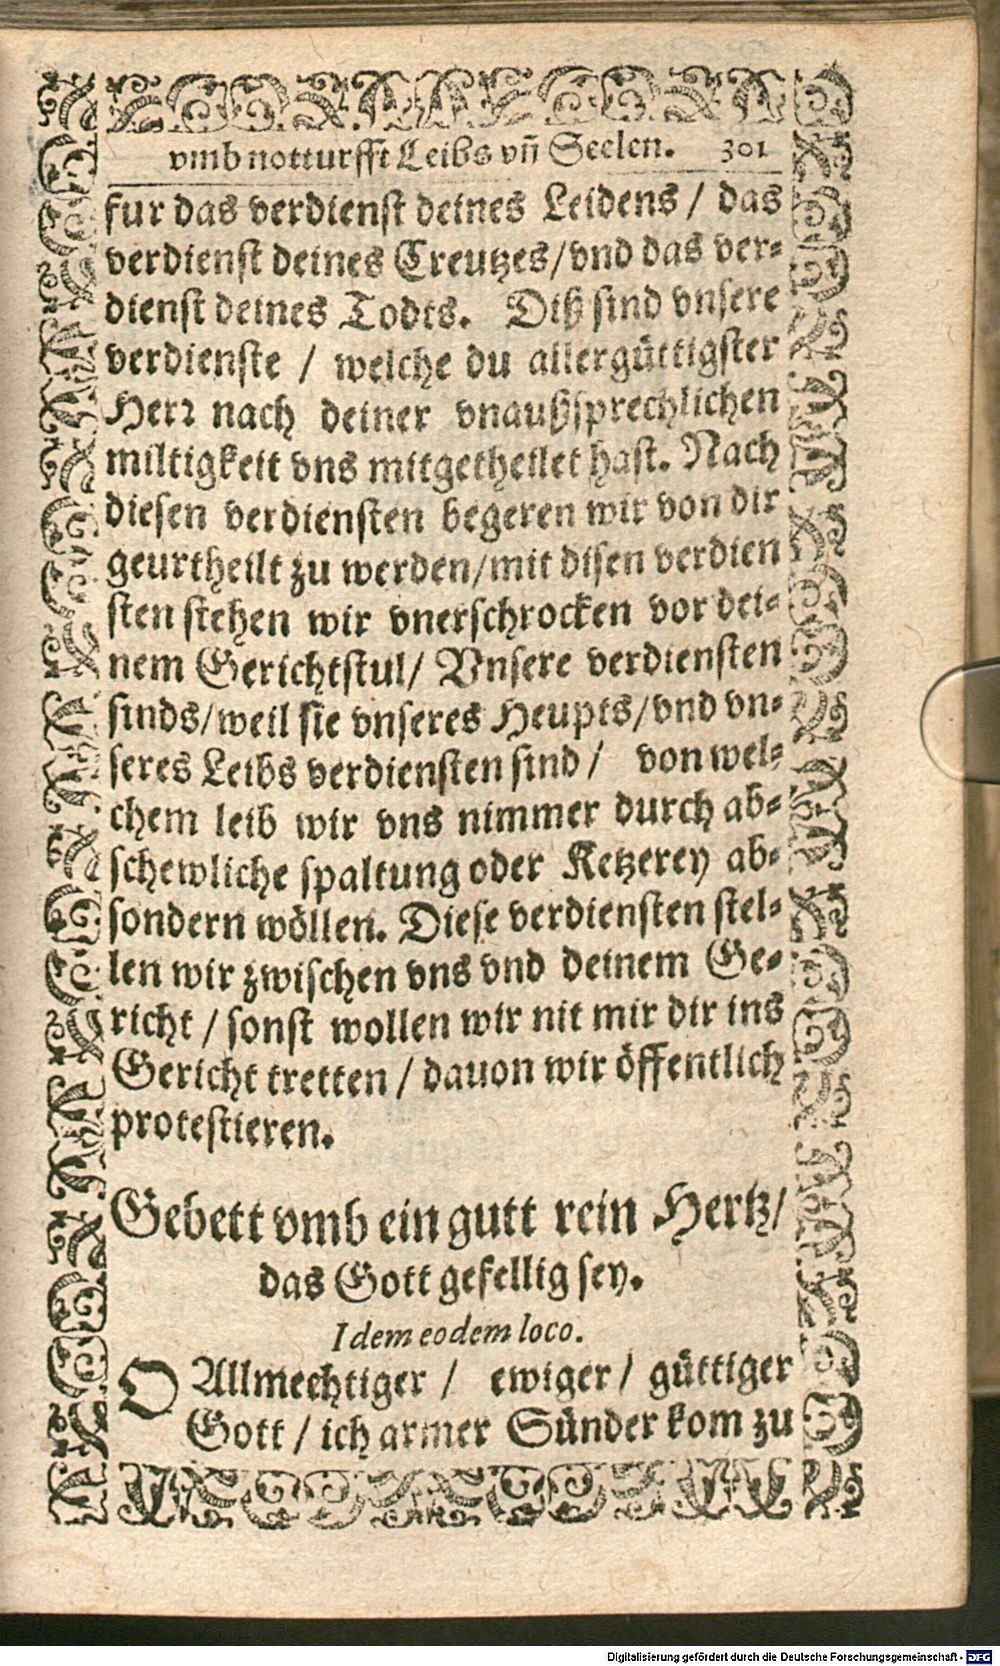 vmb notturfft Leibs vñ Seelen. 301
fur das verdienst deines Leidens / das
verdienst deines Creutzes/vnd das ver⸗
dienst deines Todts. Diß sind vnsere
verdienste / welche du allergüttigster
Herr nach deiner vnaußsprechlichen
miltigkeit vns mitgetheilet hast. Nach
diesen verdiensten begeren wir von dir
geurtheilt zu werden/mit disen verdien
sten stehen wir vnerschrocken vor dei⸗
nem Gerichtstul/ Vnsere verdiensten
sinds/weil sie vnseres Heupts/vnd vn⸗
seres Leibs verdiensten sind / von wel⸗
chem leib wir vns nimmer durch ab⸗
schewliche spaltung oder Ketzerey ab⸗
sondern wöllen. Diese verdiensten stel⸗
len wir zwischen vns vnd deinem Ge⸗
richt / sonst wollen wir nit mir dir ins
Gericht tretten / dauon wir öffentlich
protestieren.
Gebett vmb ein gutt rein Hertz/
das Gott gefellig sey.
Idem eodem loco.
O Allmechtiger / ewiger / güttiger
Gott / ich armer Sünder kom zu
Digitalisierung gefördert durch die Deutsche Forschungsgemeinschaft - DFG